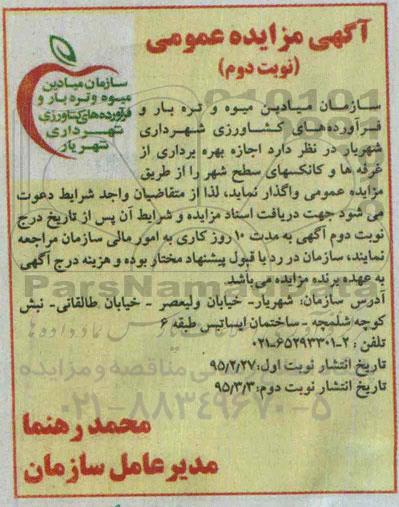 آگهی مزایده عمومی
(نوبت دوم)
سازمان میادین
میوه و تره بار و
فرآورده‌های کشاورزی
شهرداری
شهریار
سازمان میادین میوه و تره بار و
فرآورده‌های کشاورزی شهرداری
شهریار در نظر دارد اجازه بهره برداری از
غرفه ها و کانکسهای سطح شهر را از طریق
مزایده عمومی واگذار نماید، لذا از متقاضیان واجد شرایط دعوت
می شود جهت دریافت اسناد مزایده و شرایط آن پس از تاریخ درج
نوبت دوم آگهی به مدت ۱۰ روز کاری به امور مالی سازمان مراجعه
نمایند، سازمان در رد یا قبول پیشنهاد مختار بوده و هزینه درج آگهی
به عهده برنده مزایده می‌باشد.
آدرس سازمان: شهریار- خیابان ولیعصر - خیابان طالقانی- نبش
کوچه شلمچه - ساختمان ایساتیس طبقه ۶
تلفن : ۲-۶۵۲۹۳۳۰۱-۰۲۱
تاریخ انتشار نوبت اول: ۹۵/۲/۲۷
تاریخ انتشار نوبت دوم: ۹۵/۳/۳
محمد رهنما
مدیر عامل سازمان
ParsNamadData
۰۲۱-۸۸۳۴۹۶۷۰-۵